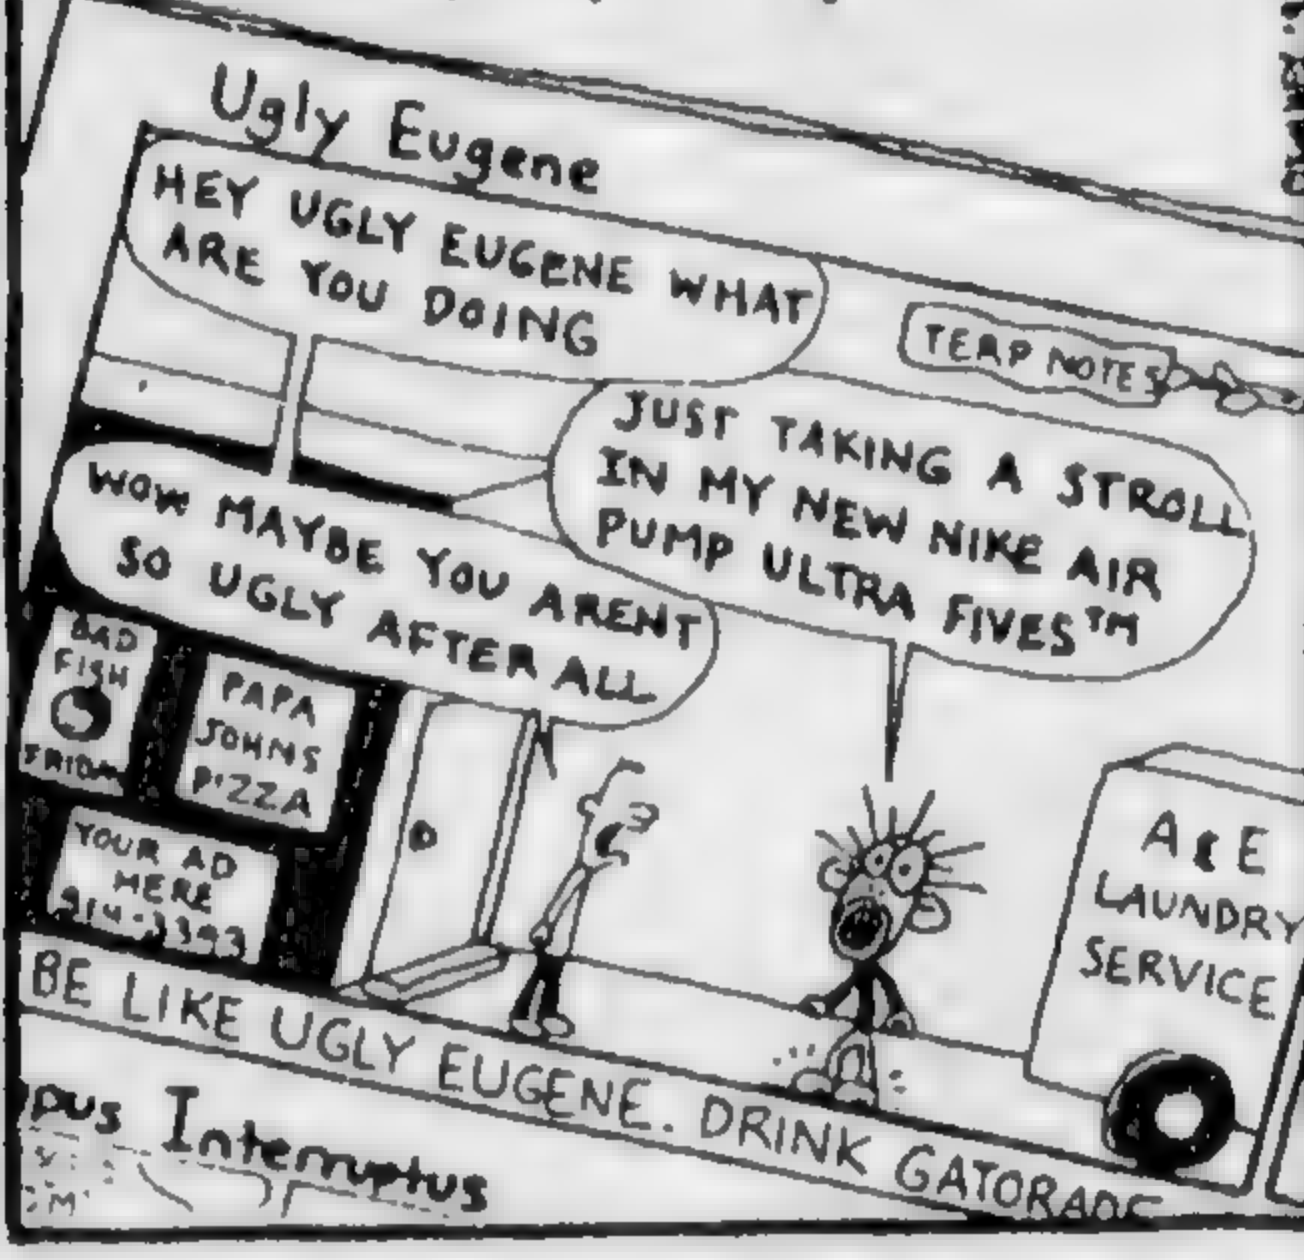 Ugly Eugene
HEY UGLY EUGENE WHAT
ARE YOU DOING
TERP NOTES
JUST TAKING A STROLL
IN MY NEW NIKE AIR
PUMP ULTRA FIVES™
WOW MAYBE YOU ARENT
SO UGLY AFTER ALL
BAD
FISH
FRIDAY
PAPA
JOHNS
PIZZA
YOUR AD
HERE
314-3393
A & E
LAUNDRY
SERVICE
BE LIKE UGLY EUGENE. DRINK GATORADE
pus Interruptus